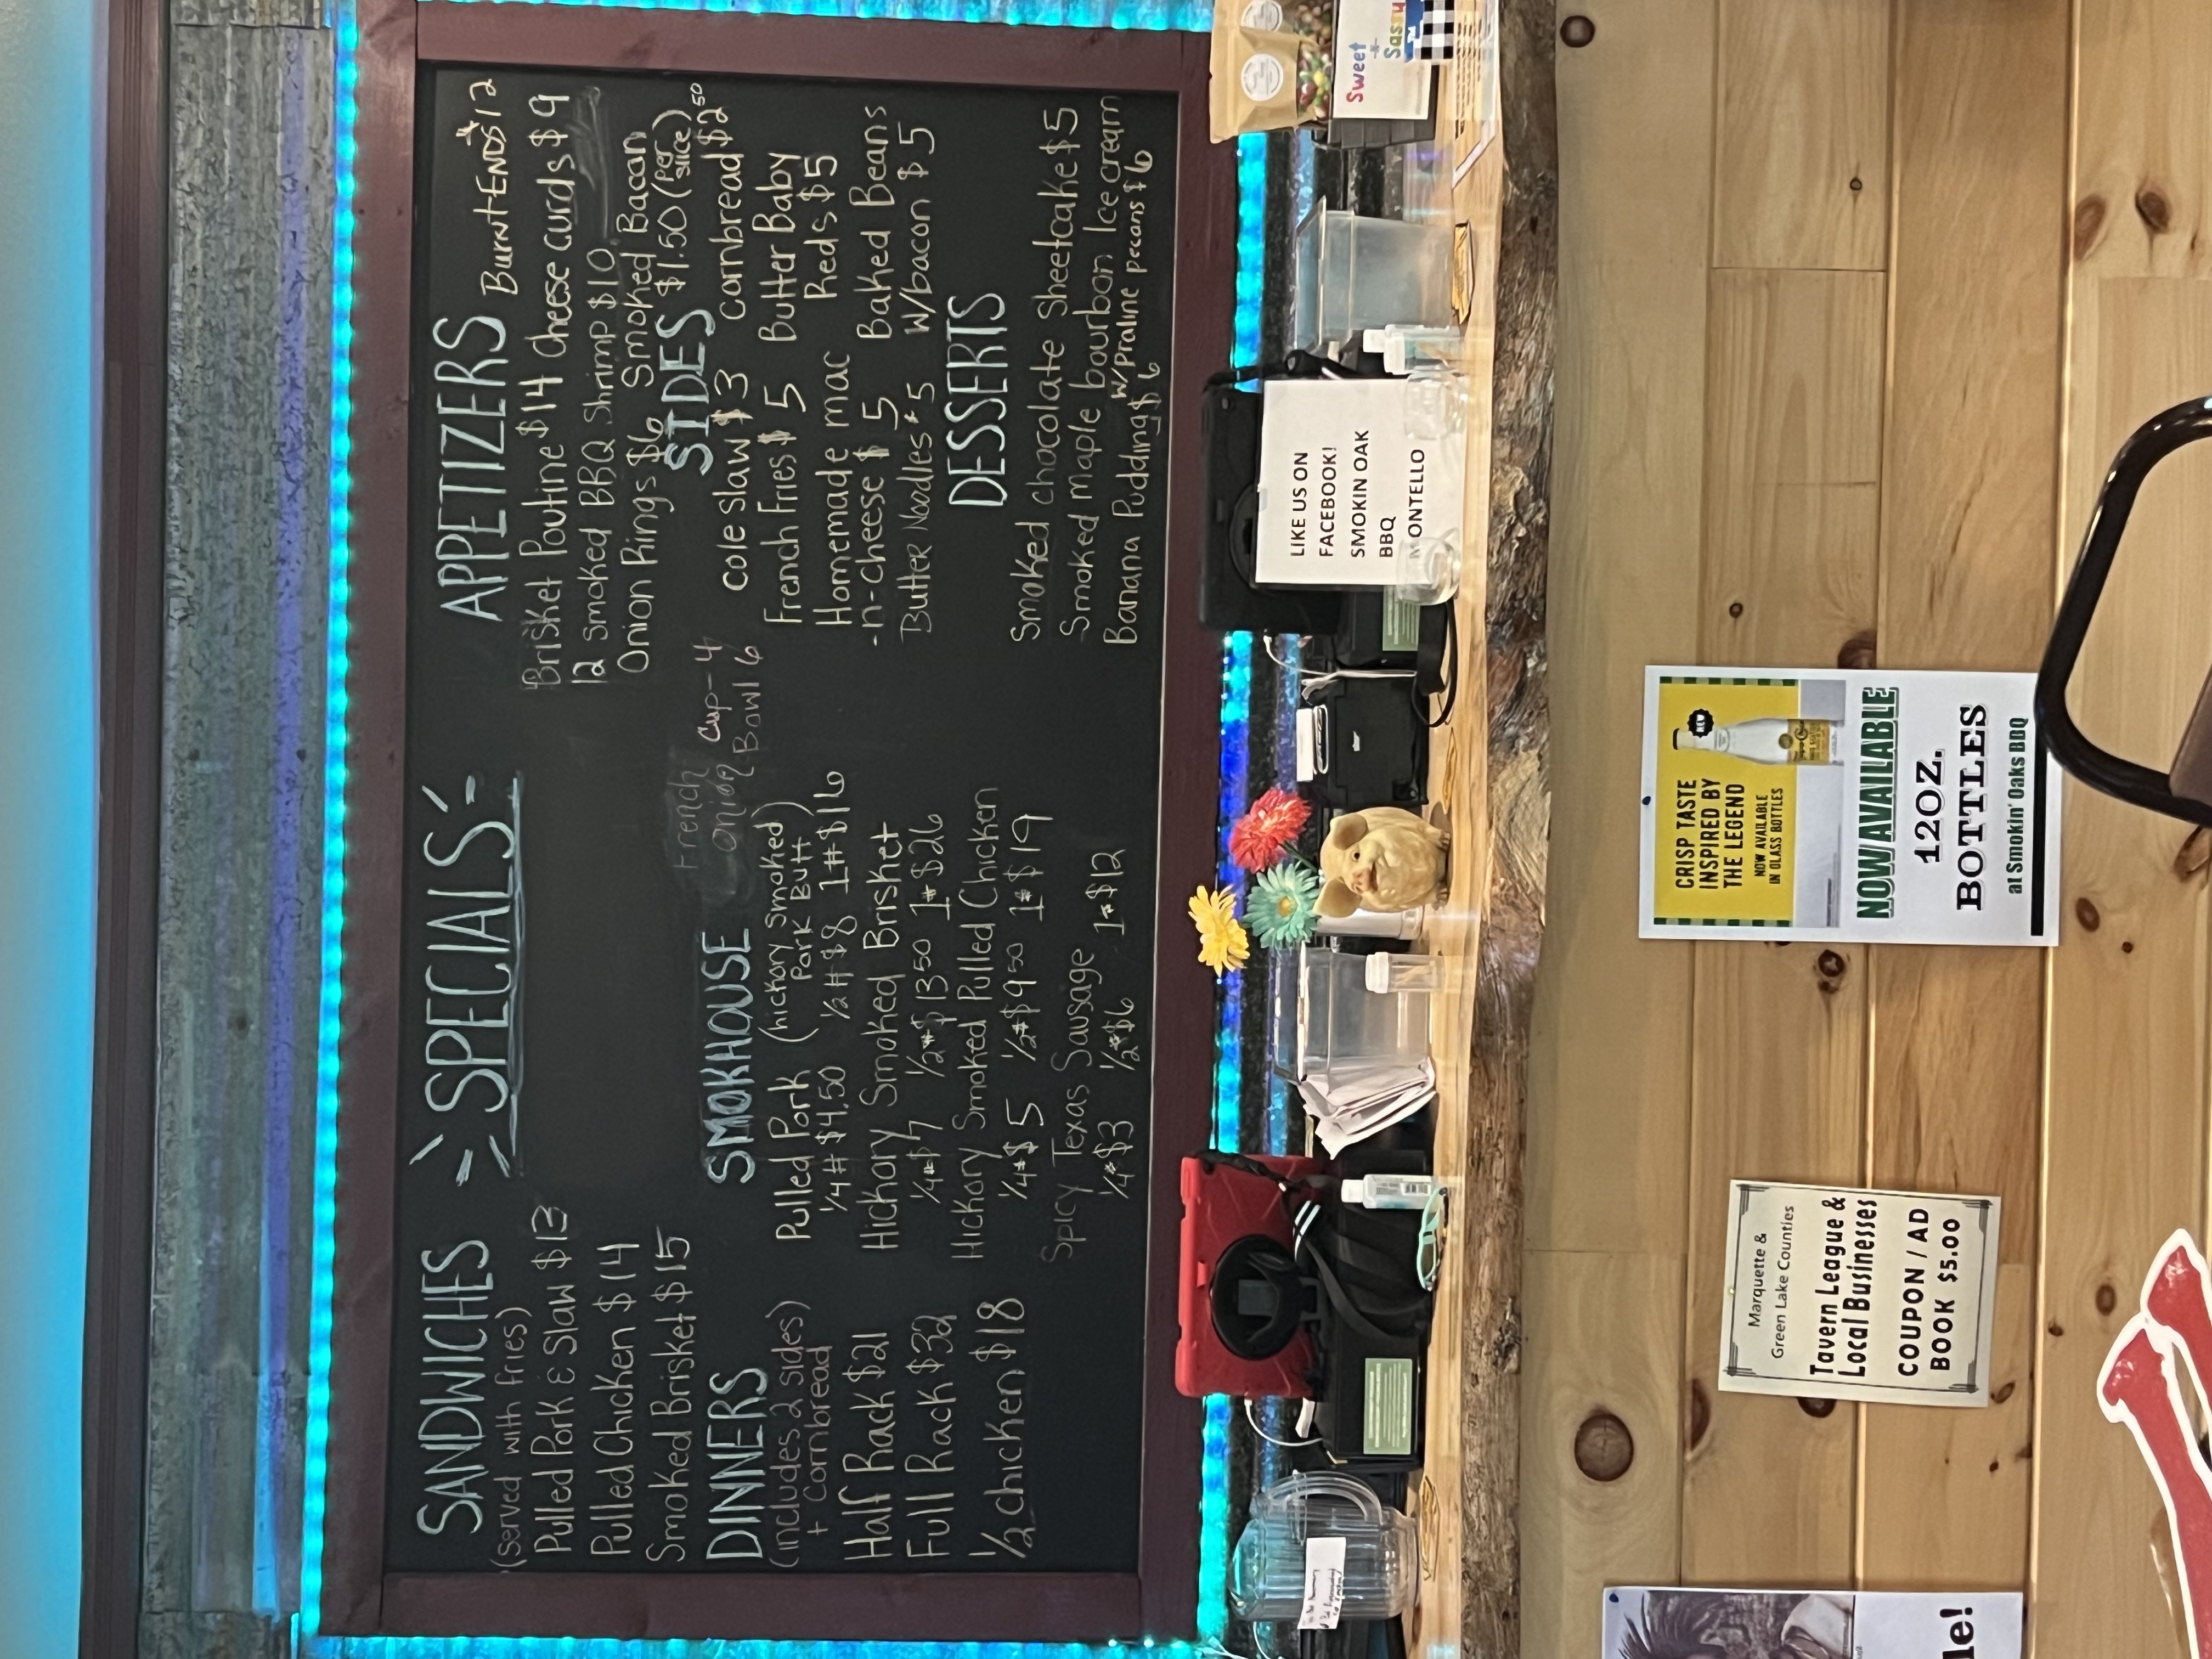 SANDWICHES
(served with fries)
Pulled Pork & Slaw $13
Pulled Chicken $14
Smoked Brisket $15
DINNERS
(includes 2 sides)
+ Cornbread
Half Rack $21
Full Rack $32
1/2 chicken $18
SPECIALS
French
Onion
Cup-4
Bowl 6
SMOKHOUSE
Pulled Pork (hickory smoked)
Pork Butt
1/4# $4.50 1/2# $8 1# $16
Hickory Smoked Brisket
1/4# $7 1/2# $13 50 1# $26
Hickory Smoked Pulled Chicken
1/4# $5 1/2# $9 50 1# $19
Spicy Texas Sausage
1/4# $3 1/2# $6 1# $12
APPETIZERS
Burnt ENDS $12
Brisket Poutine $14 cheese curds $9
12 smoked BBQ Shrimp $10
Onion Rings $6 Smoked Bacon
$1.50 (per slice)
SIDES
cole slaw $3 cornbread $2 50
French Fries $5 Butter Baby
Reds $5
Homemade mac
-n-cheese $5 Baked Beans
Butter Noodles $5 w/bacon $5
DESSERTS
Smoked chocolate sheetcake $5
Smoked maple bourbon Ice cream
w/praline pecans $6
Banana Pudding $6
LIKE US ON
FACEBOOK!
SMOKIN OAK
BBQ
MONTELLO
Sweet
-N-
Sassy
CRISP TASTE
INSPIRED BY
THE LEGEND
NOW AVAILABLE
IN GLASS BOTTLES
NEW
NOW AVAILABLE
12OZ.
BOTTLES
at Smokin' Oaks BBQ
Marquette &
Green Lake Counties
Tavern League &
Local Businesses
COUPON / AD
BOOK $5.00